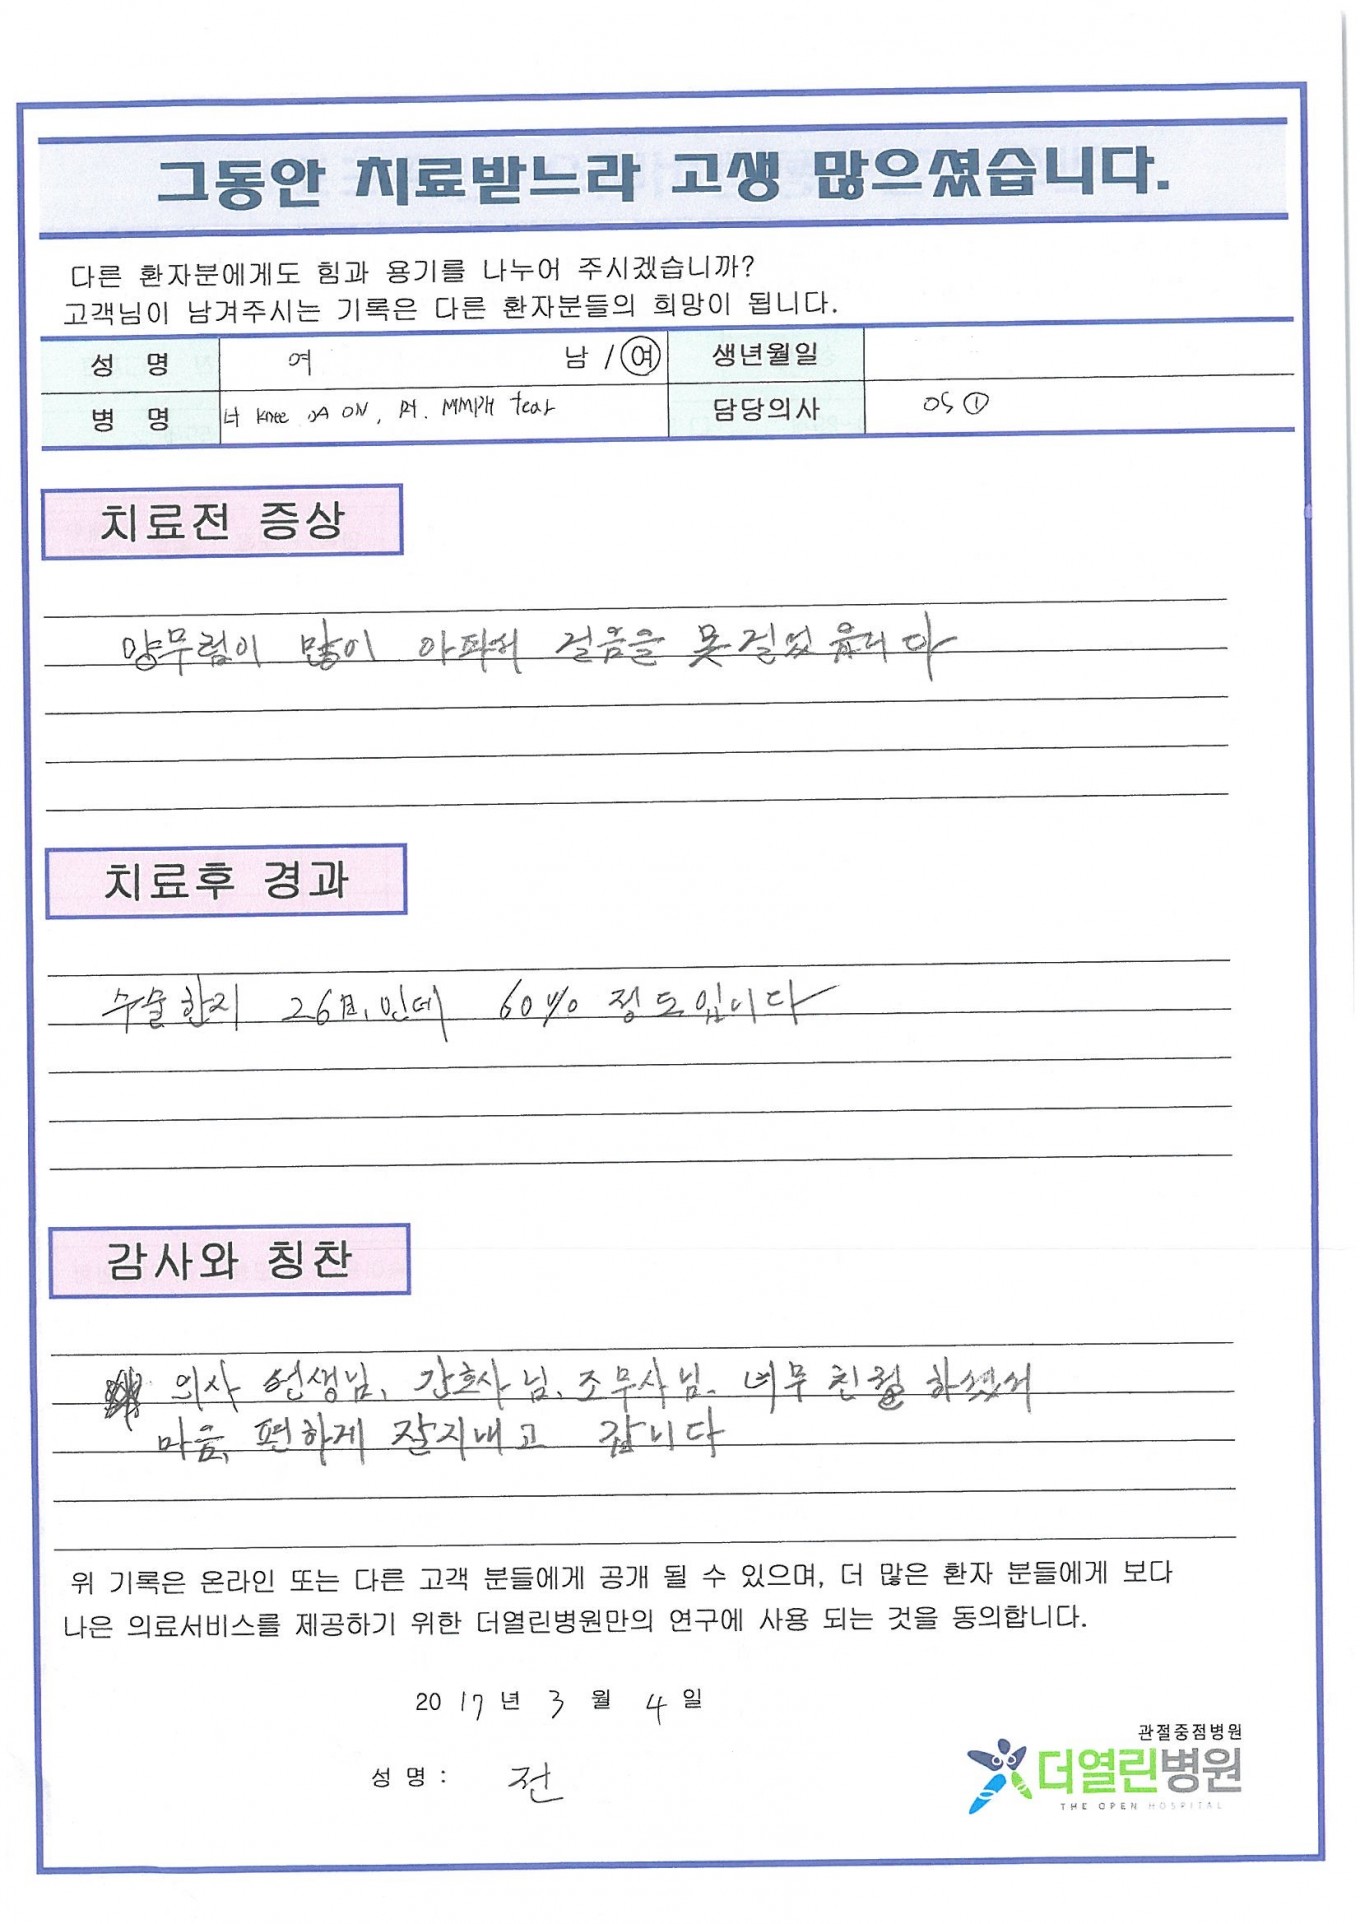 그동안 치료받느라 고생 많으셨습니다.
다른 환자분에게도 힘과 용기를 나누어 주시겠습니까?
고객님이 남겨주시는 기록은 다른 환자분들의 희망이 됩니다.
성 명 여 남 / 여 생년월일
병 명 Knee OA ON, Rt. MMPH tear 담당의사 OS ①
치료전 증상
양무렵이 많이 아파서 걸음을 못걸었읍니다
치료후 경과
수술한지 26日인데 60% 정도입니다
감사와 칭찬
의사 선생님, 간호사님, 조무사님. 너무 친절하셨서
마음 편하게 잘지내고 갑니다
위 기록은 온라인 또는 다른 고객 분들에게 공개 될 수 있으며, 더 많은 환자 분들에게 보다
나은 의료서비스를 제공하기 위한 더열린병원만의 연구에 사용 되는 것을 동의합니다.
2017년 3월 4일
성 명 : 전
관절중점병원
더열린병원
THE OPEN HOSPITAL